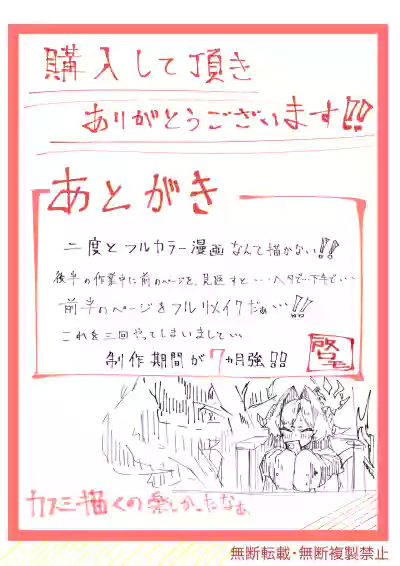 購入して頂き
ありがとうございます!!
あとがき
二度とフルカラー漫画なんて描かない!!
後半の作業中に前のページを見返すと…ヘタで…下手で…
前半のページをフルリメイクだぁ…!!
これを三回やってしまいまして…
制作期間が7ヵ月強!!
カスミ描くの楽しかったなぁ
無断転載・無断複製禁止